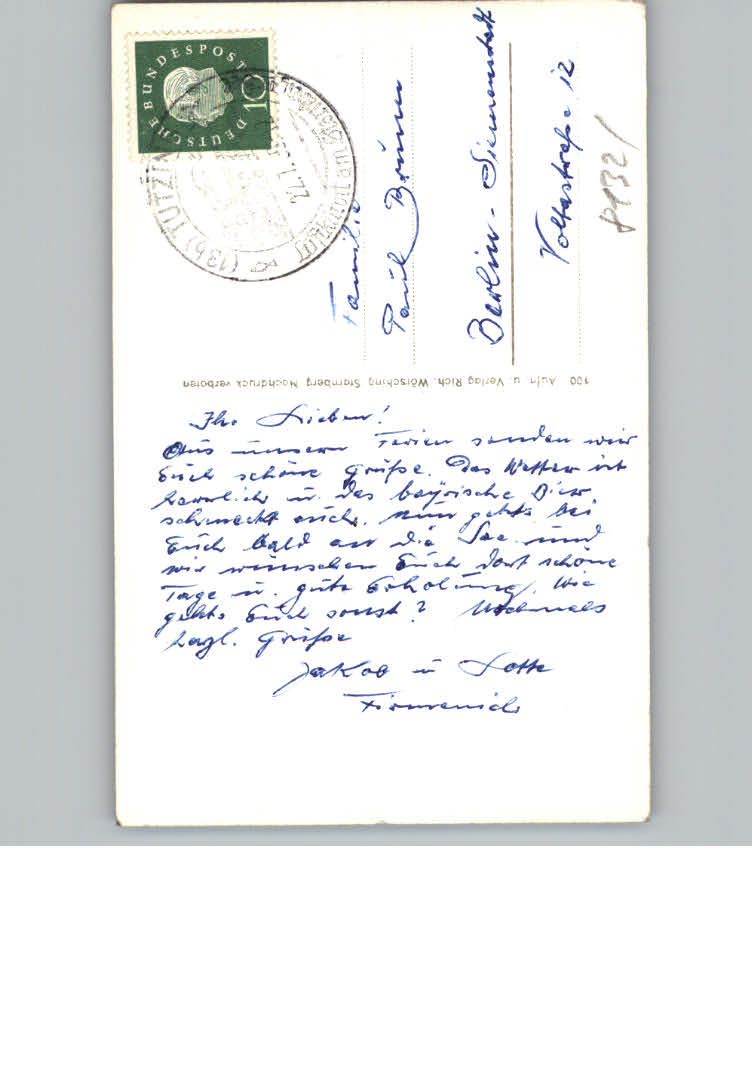 DEUTSCHE BUNDESPOST
10
(13b) TUTZING
27.7.
Familie
Paul Brünn
Berlin-Siemensstadt
Voltastraße 12
8132/
100 Aufn. u. Verlag Rich. Wörsching Starnberg Nachdruck verboten
Ihr Lieben!
Aus unsern Ferien senden wir
Euch schöne Grüße. Das Wetter ist
herrlich u. das bayrische Bier
schmeckt auch. Nun gehts bei
Euch bald an die See und
wir wünschen Euch dort schöne
Tage u. gute Erholung. Wie
gehts Euch sonst? Nochmals
herzl. Grüße
Jakob u Lotte
Firmenich